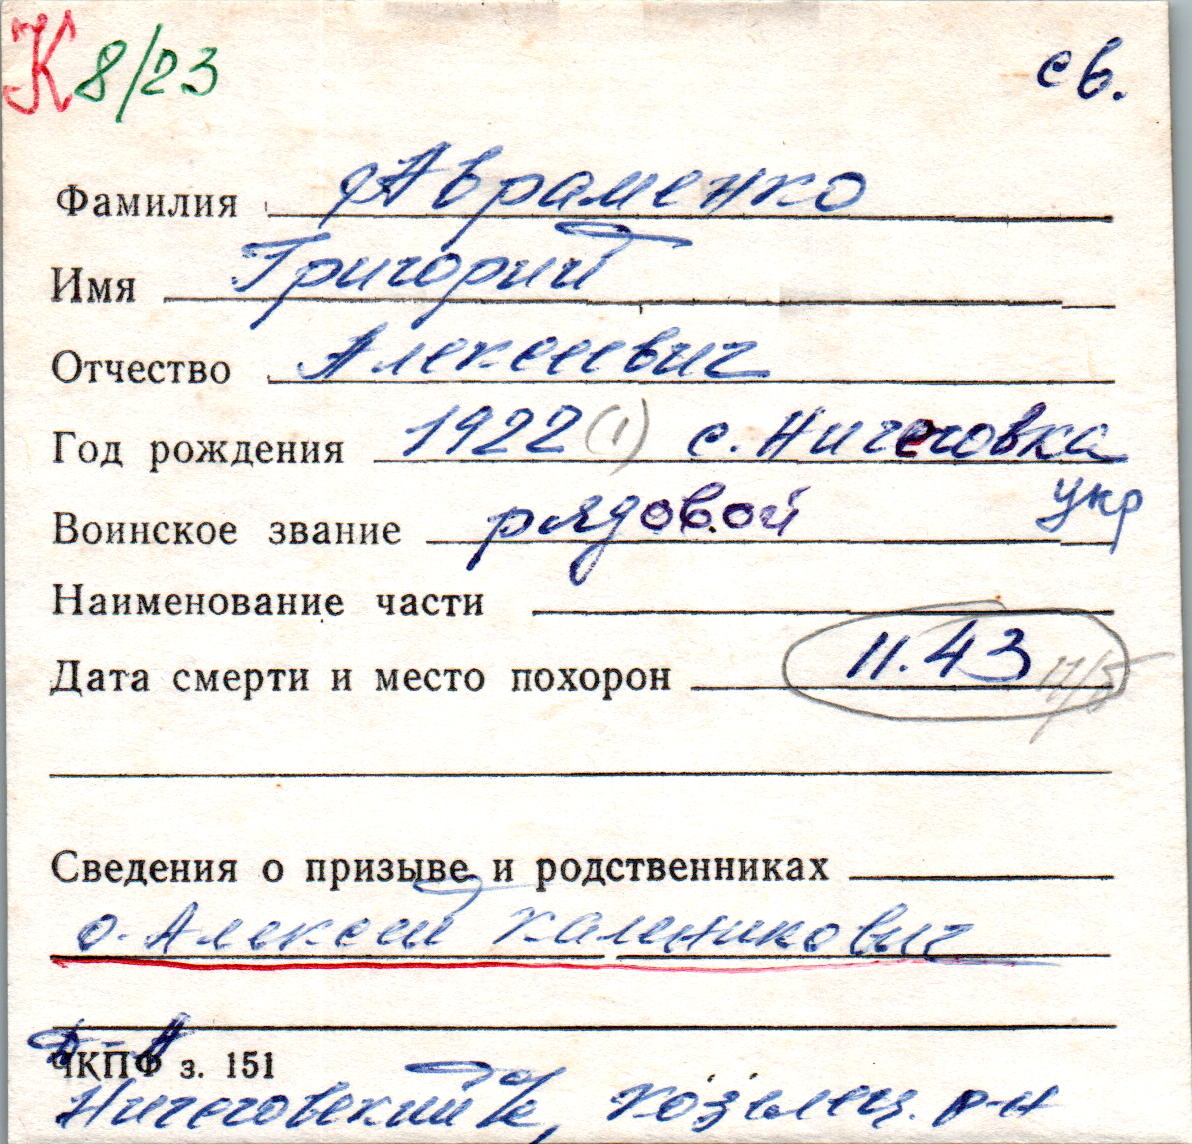 К 8/23 св.
Фамилия Авраменко
Имя Григорий
Отчество Алексеевич
Год рождения 1922 (1) с. Ничеговка
укр
Воинское звание рядовой
Наименование части
Дата смерти и место похорон 11.43
Сведения о призыве и родственниках
о. Алексей Каленикович
ЧКПФ з. 151
Ничеговский, Козелец. р-н